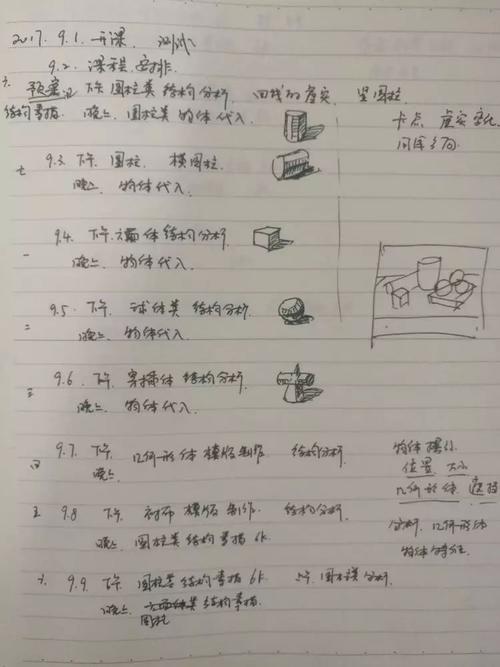 2017. 9.1. 开课. 测试
9.2. 课程安排.
六 下午 圆柱类结构分析 曲线的虚实 竖圆柱
结构素描. 晚上 圆柱类物体代入. 卡点 虚实变化
七 9.3 下午 圆柱. 横圆柱.
晚上 物体代入.
一 9.4. 下午. 六面体结构分析.
晚上. 物体代入.
二 9.5. 下午. 球体类 结构分析.
晚上. 物体代入.
三 9.6. 下午. 穿插体 结构分析.
晚上. 物体代入.
四 9.7. 下午. 几何形体 模版制作. 结构分析. 物体
晚上. 位置. 大小
几何形体
五 9.8 下午. 衬布 模版 制作. 结构分析. 分析. 几何形体
晚上. 圆柱类结构素描 6k. 物体特征.
六 9.9. 下午 圆柱类 结构素描 6k.
晚上. 六面体类结构素描.
圆柱